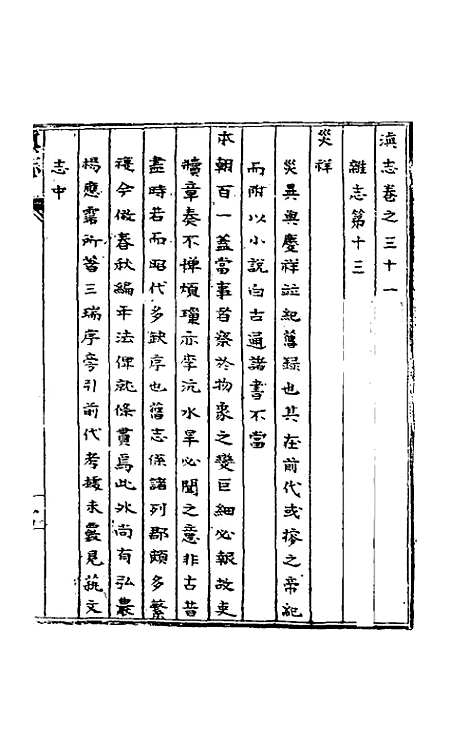 滇志卷之三十一
雜志第十三
災祥
災異與慶祥並紀舊録也其在前代或摻之帝紀
而附以小說白古通諸書不當
本朝百一蓋當事者察於物象之變巨細必報故吏
牘章奏不憚煩瑣亦李沆水旱必聞之意非古昔
盡時若而昭代多缺序也舊志係諸列郡頗多繁
複今倣春秋編年法俾就條貫焉此外尚有弘農
楊應霑所著三瑞序旁引前代考據未覈見蓺文
志中